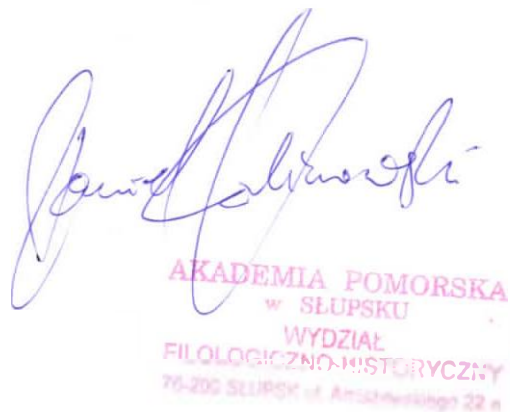 Daniel Kalinowski
AKADEMIA POMORSKA
w SŁUPSKU
WYDZIAŁ
FILOLOGICZNO-HISTORYCZNY
76-200 SŁUPSK ul. Arciszewskiego 22 a